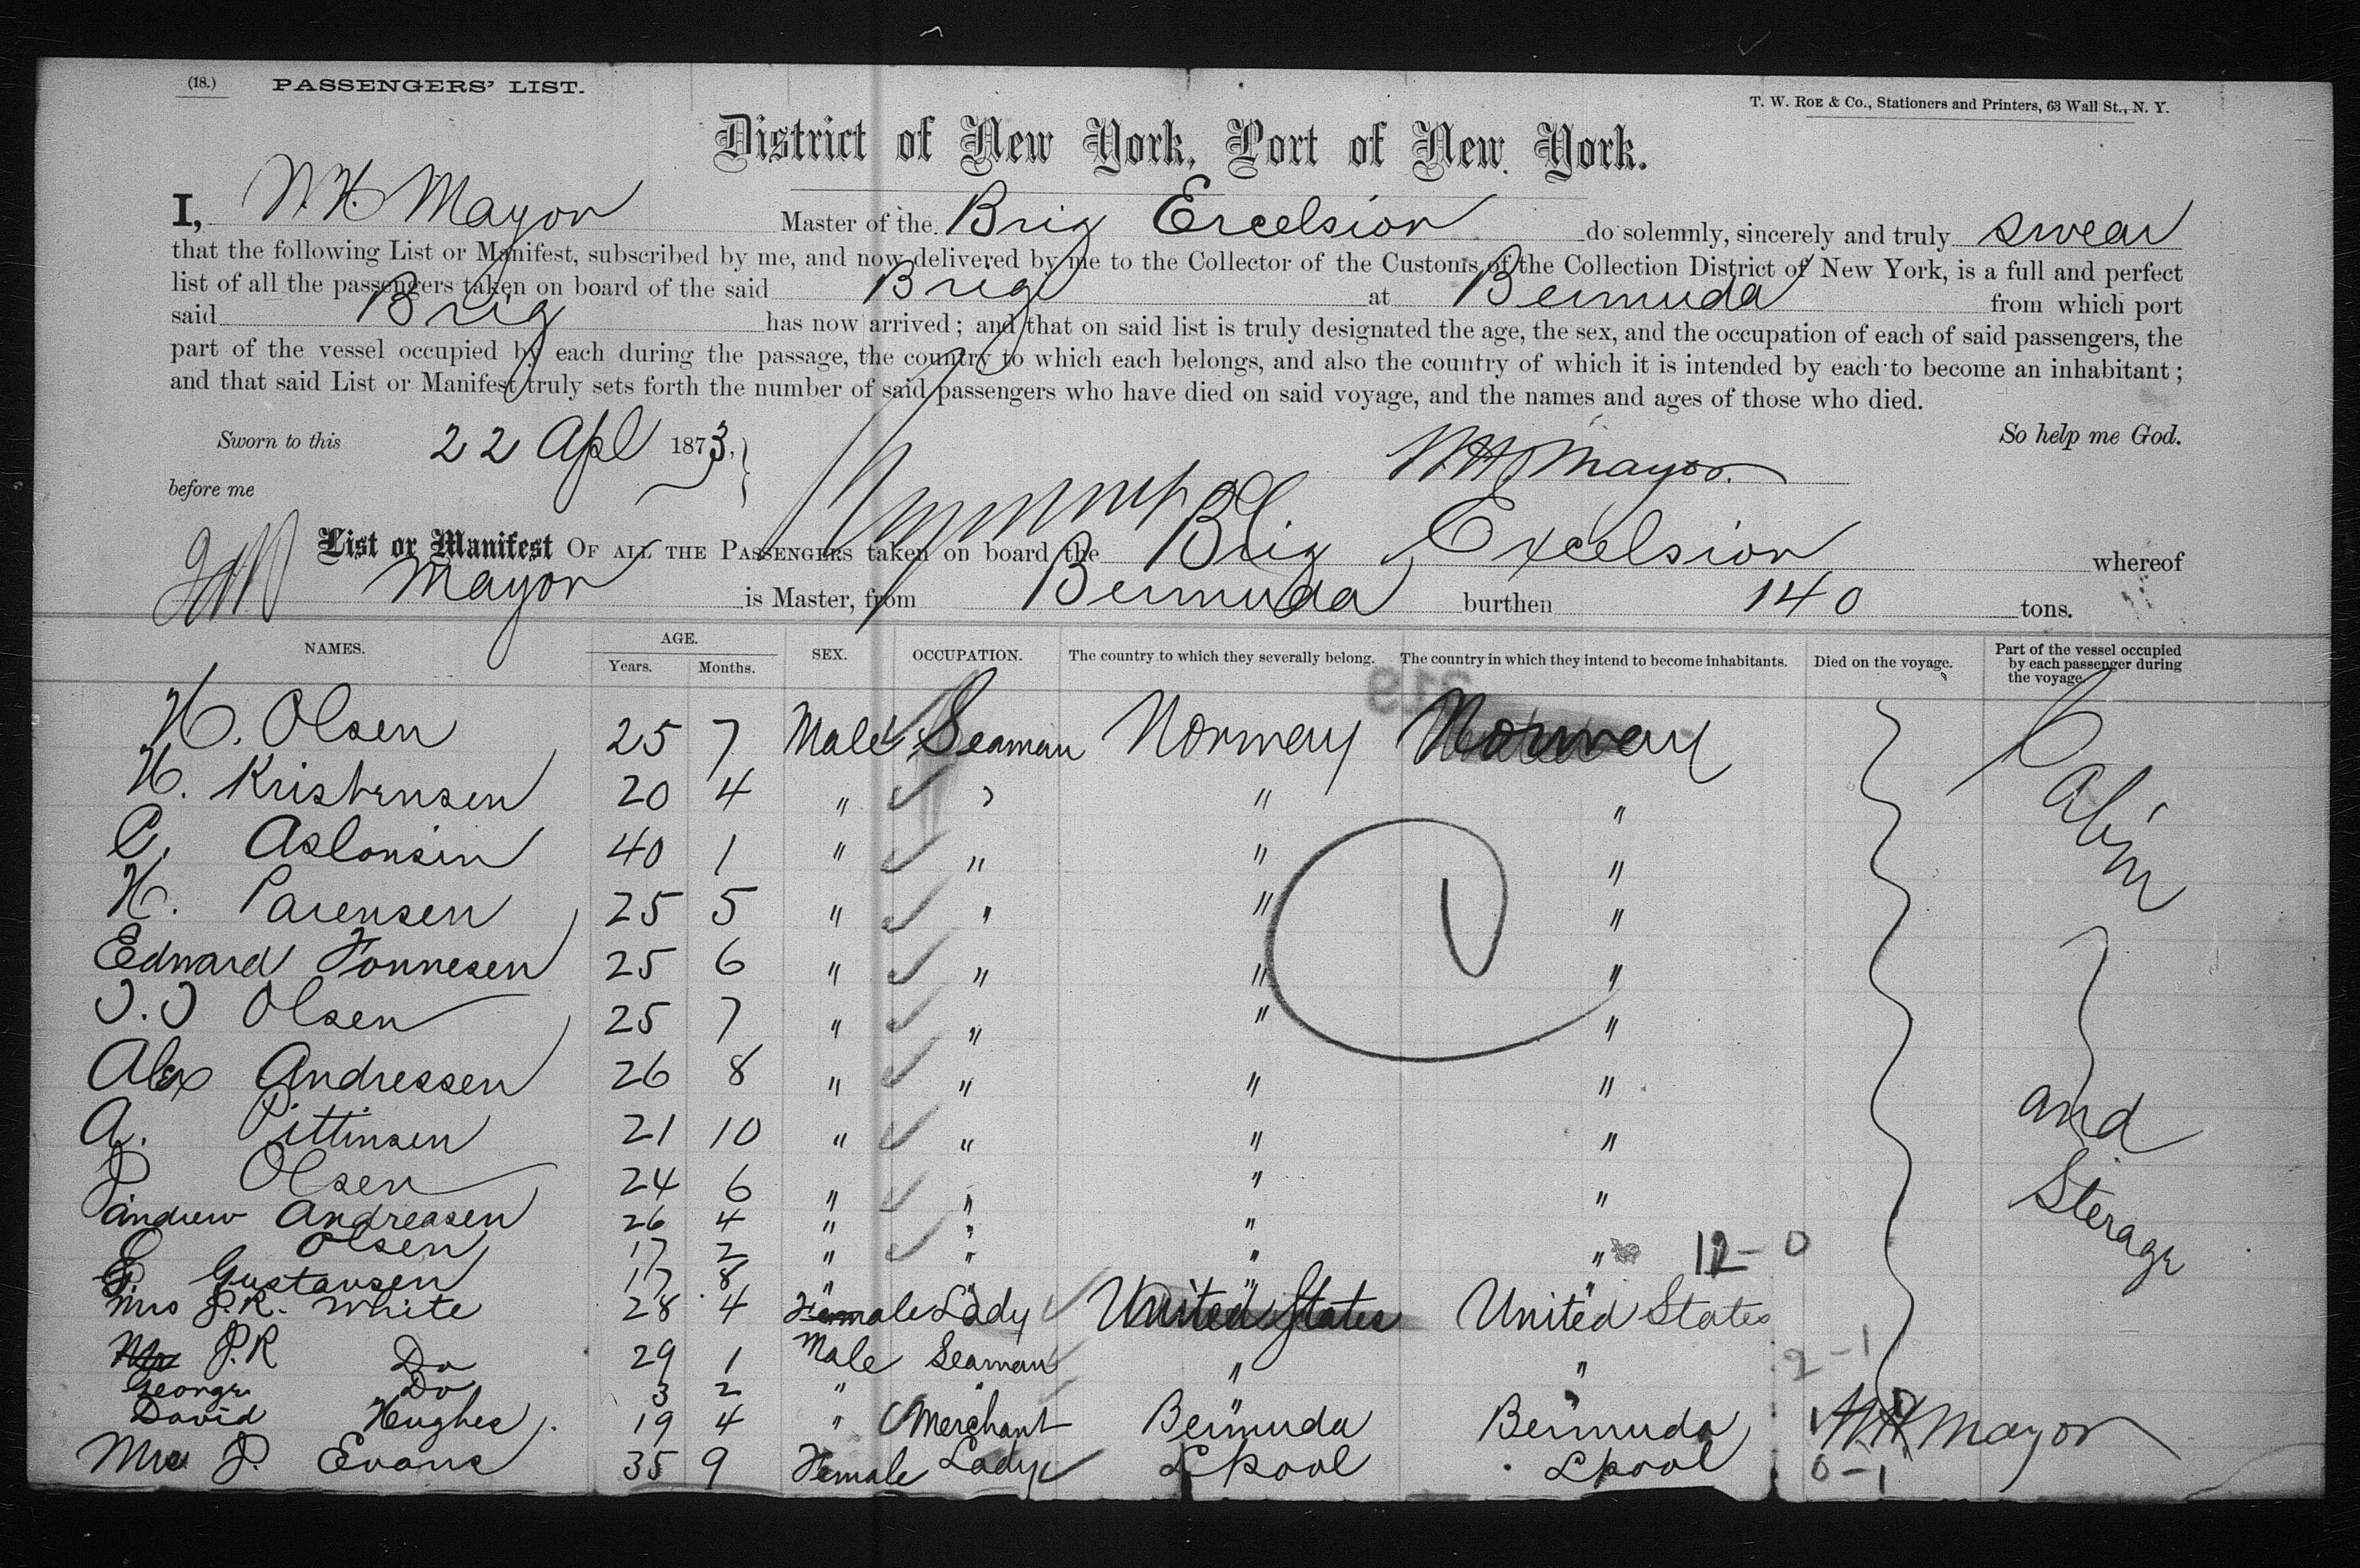 (18.) PASSENGERS' LIST.
T. W. ROE & Co., Stationers and Printers, 63 Wall St., N. Y.
District of New York, Port of New York.
I, W. H. Mayor Master of the Brig Excelsior do solemnly, sincerely and truly swear
that the following List or Manifest, subscribed by me, and now delivered by me to the Collector of the Customs of the Collection District of New York, is a full and perfect
list of all the passengers taken on board of the said Brig at Bermuda from which port
said Brig has now arrived; and that on said list is truly designated the age, the sex, and the occupation of each of said passengers, the
part of the vessel occupied by each during the passage, the country to which each belongs, and also the country of which it is intended by each to become an inhabitant;
and that said List or Manifest truly sets forth the number of said passengers who have died on said voyage, and the names and ages of those who died.
Sworn to this 22 Apl 1873, So help me God.
before me W. H. Mayor.
List or Manifest OF ALL THE PASSENGERS taken on board the Brig Excelsior whereof
Mayor is Master, from Bermuda burthen 140 tons.
NAMES. AGE. Years. Months. SEX. OCCUPATION. The country to which they severally belong. The country in which they intend to become inhabitants. Died on the voyage. Part of the vessel occupied by each passenger during the voyage.
319
H. Olsen 25 7 Male Seaman Norway Norway Cabin
H. Kristensen 20 4 " " " "
C. Aslonsin 40 1 " " " "
H. Parensen 25 5 " " " "
Edward Tonnesen 25 6 " " " "
J. J Olsen 25 7 " " " "
Alex Andressen 26 8 " " " " and
A. Pittinsen 21 10 " " " "
P Olsen 24 6 " " " " Sterage
Andrew Andreasen 26 4 " " "
E Olsen 17 2 " " " " 12-0
E. Gustavsen 17 8 " " " "
Mrs J. R. White 28 4 Female Lady United States United States
J. R Do 29 1 Male Seaman " " 2-1
George Do 3 2 " " " "
David Hughes 19 4 " Merchant Bermuda Bermuda W H Mayor
Mrs J. Evans 35 9 Female Lady Lpool Lpool 0-1